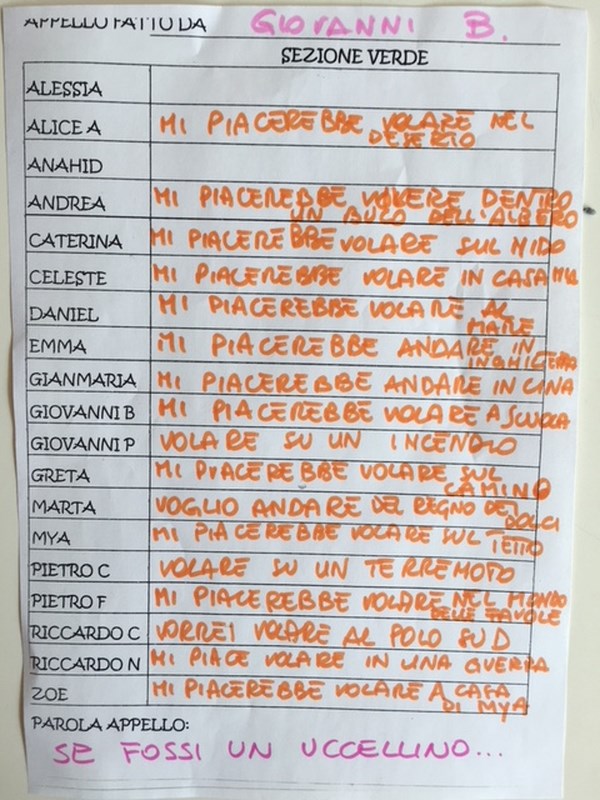 APPELLO FATTO DA GIOVANNI B.
SEZIONE VERDE
ALESSIA
ALICE A MI PIACEREBBE VOLARE NEL
DESERTO
ANAHID
ANDREA MI PIACEREBBE VIVERE DENTRO
UN BUCO DELL'ALBERO
CATERINA MI PIACEREBBE VOLARE SUL NIDO
CELESTE MI PIACEREBBE VOLARE IN CASA MIA
DANIEL MI PIACEREBBE VOLARE AL
MARE
EMMA MI PIACEREBBE ANDARE IN
INGHILTERRA
GIANMARIA MI PIACEREBBE ANDARE IN CINA
GIOVANNI B MI PIACEREBBE VOLARE A SCUOLA
GIOVANNI P VOLARE SU UN INCENDIO
GRETA MI PIACEREBBE VOLARE SUL
CAMINO
MARTA VOGLIO ANDARE DEL REGNO DEI
DOLCI
MYA MI PIACEREBBE VOLARE SUL TETTO
PIETRO C VOLARE SU UN TERREMOTO
PIETRO F MI PIACEREBBE VOLARE NEL MONDO
DELLE FAVOLE
RICCARDO C VORREI VOLARE AL POLO SUD
RICCARDO N MI PIACE VOLARE IN UNA GUERRA
ZOE MI PIACEREBBE VOLARE A CASA
DI MYA
PAROLA APPELLO:
SE FOSSI UN UCCELLINO...